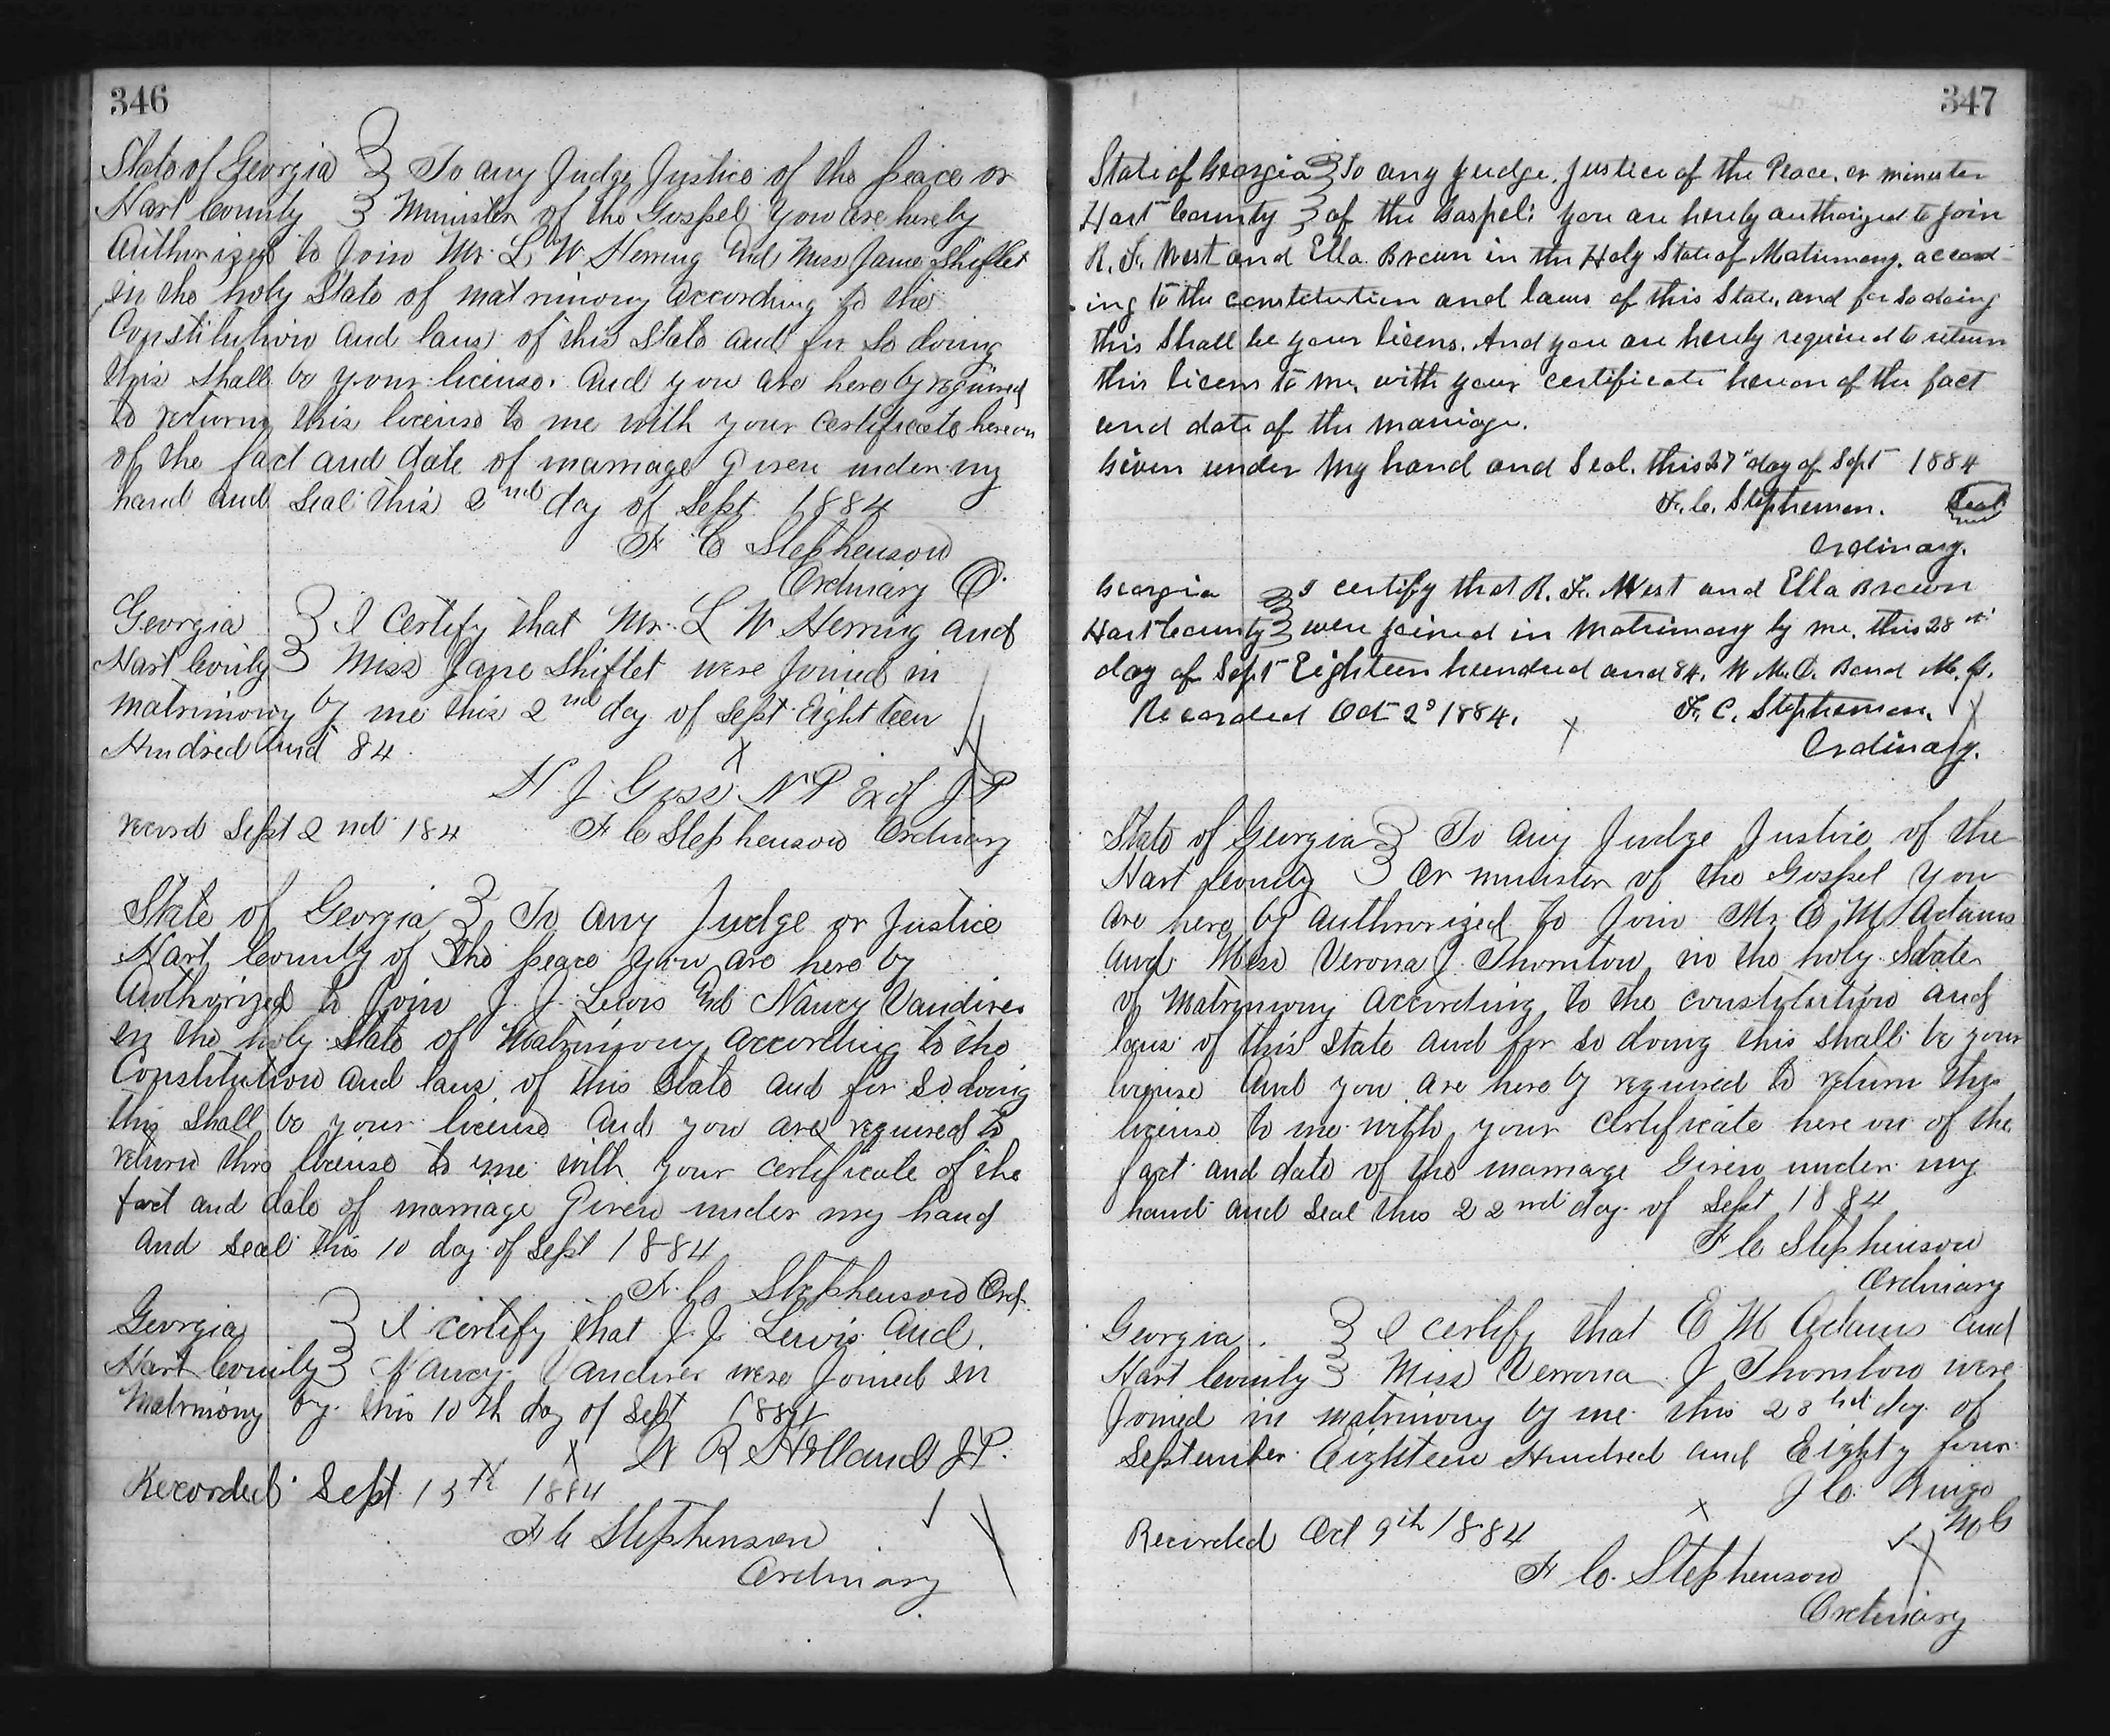 346
State of Georgia } To any Judge Justice of the peace or
Hart County } Minister of the Gospel you are hereby
Authorized to Join Mr. L W Herring And Miss Jane Shiflet
in the holy State of matrimony according to the
Constitution and laws of this State and for so doing
this shall be your license. And you are here by required
to return this license to me with your certificate hereon
of the fact and date of marriage Given under my
hand and Seal this 2nd day of Sept 1884
F C Stephenson
Ordinary
Georgia } I Certify that Mr. L W Herring and
Hart County } Miss Jane Shiflet were Joined in
matrimony by me this 2nd day of Sept Eighteen
Hundred and 84
H J Goss N P Ex of J P
record Sept 2nd 184 F C Stephenson Ordinary
State of Georgia } To any Judge or Justice
Hart County of } the peace you are here by
Authorized to Join J. J. Lewis And Nancy Vandiver
in the holy State of Matrimony according to the
Constitution and laws of this State and for so doing
this shall be your license and you are required to
return this license to me with your certificate of the
fact and date of marriage Given under my hand
and seal this 10 day of Sept 1884
F. C. Stephenson Ord.
Georgia } I certify that J. J. Lewis and
Hart County } Nancy Vandiver were Joined in
Matrimony by this 10th day of Sept 1884
W R Holland J P.
Recorded Sept 13th 1884
F C Stephenson
Ordinary
347
State of Georgia } To any Judge, Justice of the Peace, or minister
Hart County } of the Gospel: you are hereby authorized to join
R. F. West and Ella Brown in the Holy State of Matrimony, accord-
ing to the constitution and laws of this State, and for so doing
this Shall be your licens. And you are hereby required to return
this licens to me, with your certificate hereon of the fact
and date of the marriage.
Given under my hand and Seal, this 27" day of Sept 1884
F. C. Stephenson. Seal
Ordinary.
Georgia } I certify that R. F. West and Ella Brown
Hart County } were joined in Matrimony by me, this 28th
day of Sept Eighteen hundred and 84. W. M. O. Bond
Recorded Oct 2d 1884. F. C. Stephenson.
Ordinary.
State of Georgia } To any Judge Justice of the
Hart County } or minister of the Gospel you
are here by authorized to Join Mr. E M Adams
and Miss Verona J. Thornton in the holy State
of Matrimony according to the constitution and
laws of this State and for so doing this shall be your
license and you are here by required to return this
license to me with your certificate here on of the
fact and date of the marriage Given under my
hand and seal this 22nd day of Sept 1884
F C Stephenson
Ordinary
Georgia. } I certify that E M Adams and
Hart County } Miss Verrona J Thornton were
Joined in matrimony by me this 23 day of
September Eighteen Hundred and Eighty four
J C. Wingo
M G
Recorded Oct 9th 1884
F C. Stephenson
Ordinary